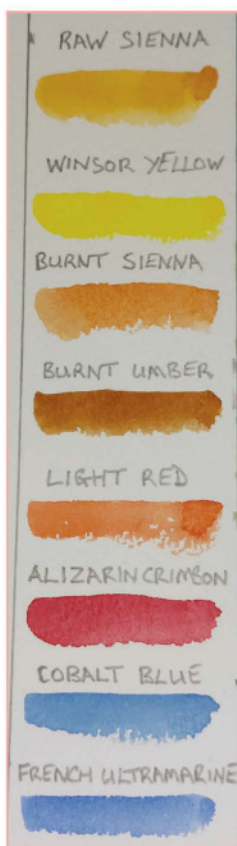 RAW SIENNA
WINSOR YELLOW
BURNT SIENNA
BURNT UMBER
LIGHT RED
ALIZARIN CRIMSON
COBALT BLUE
FRENCH ULTRAMARINE